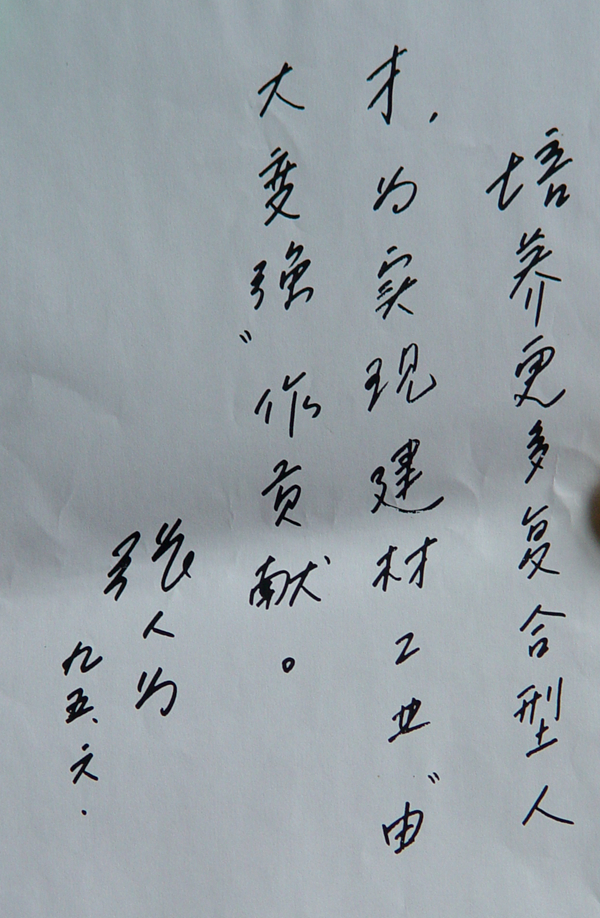 培养更多复合型人
才，为实现建材工业“由
大变强”作贡献。
张人为
九五、六.